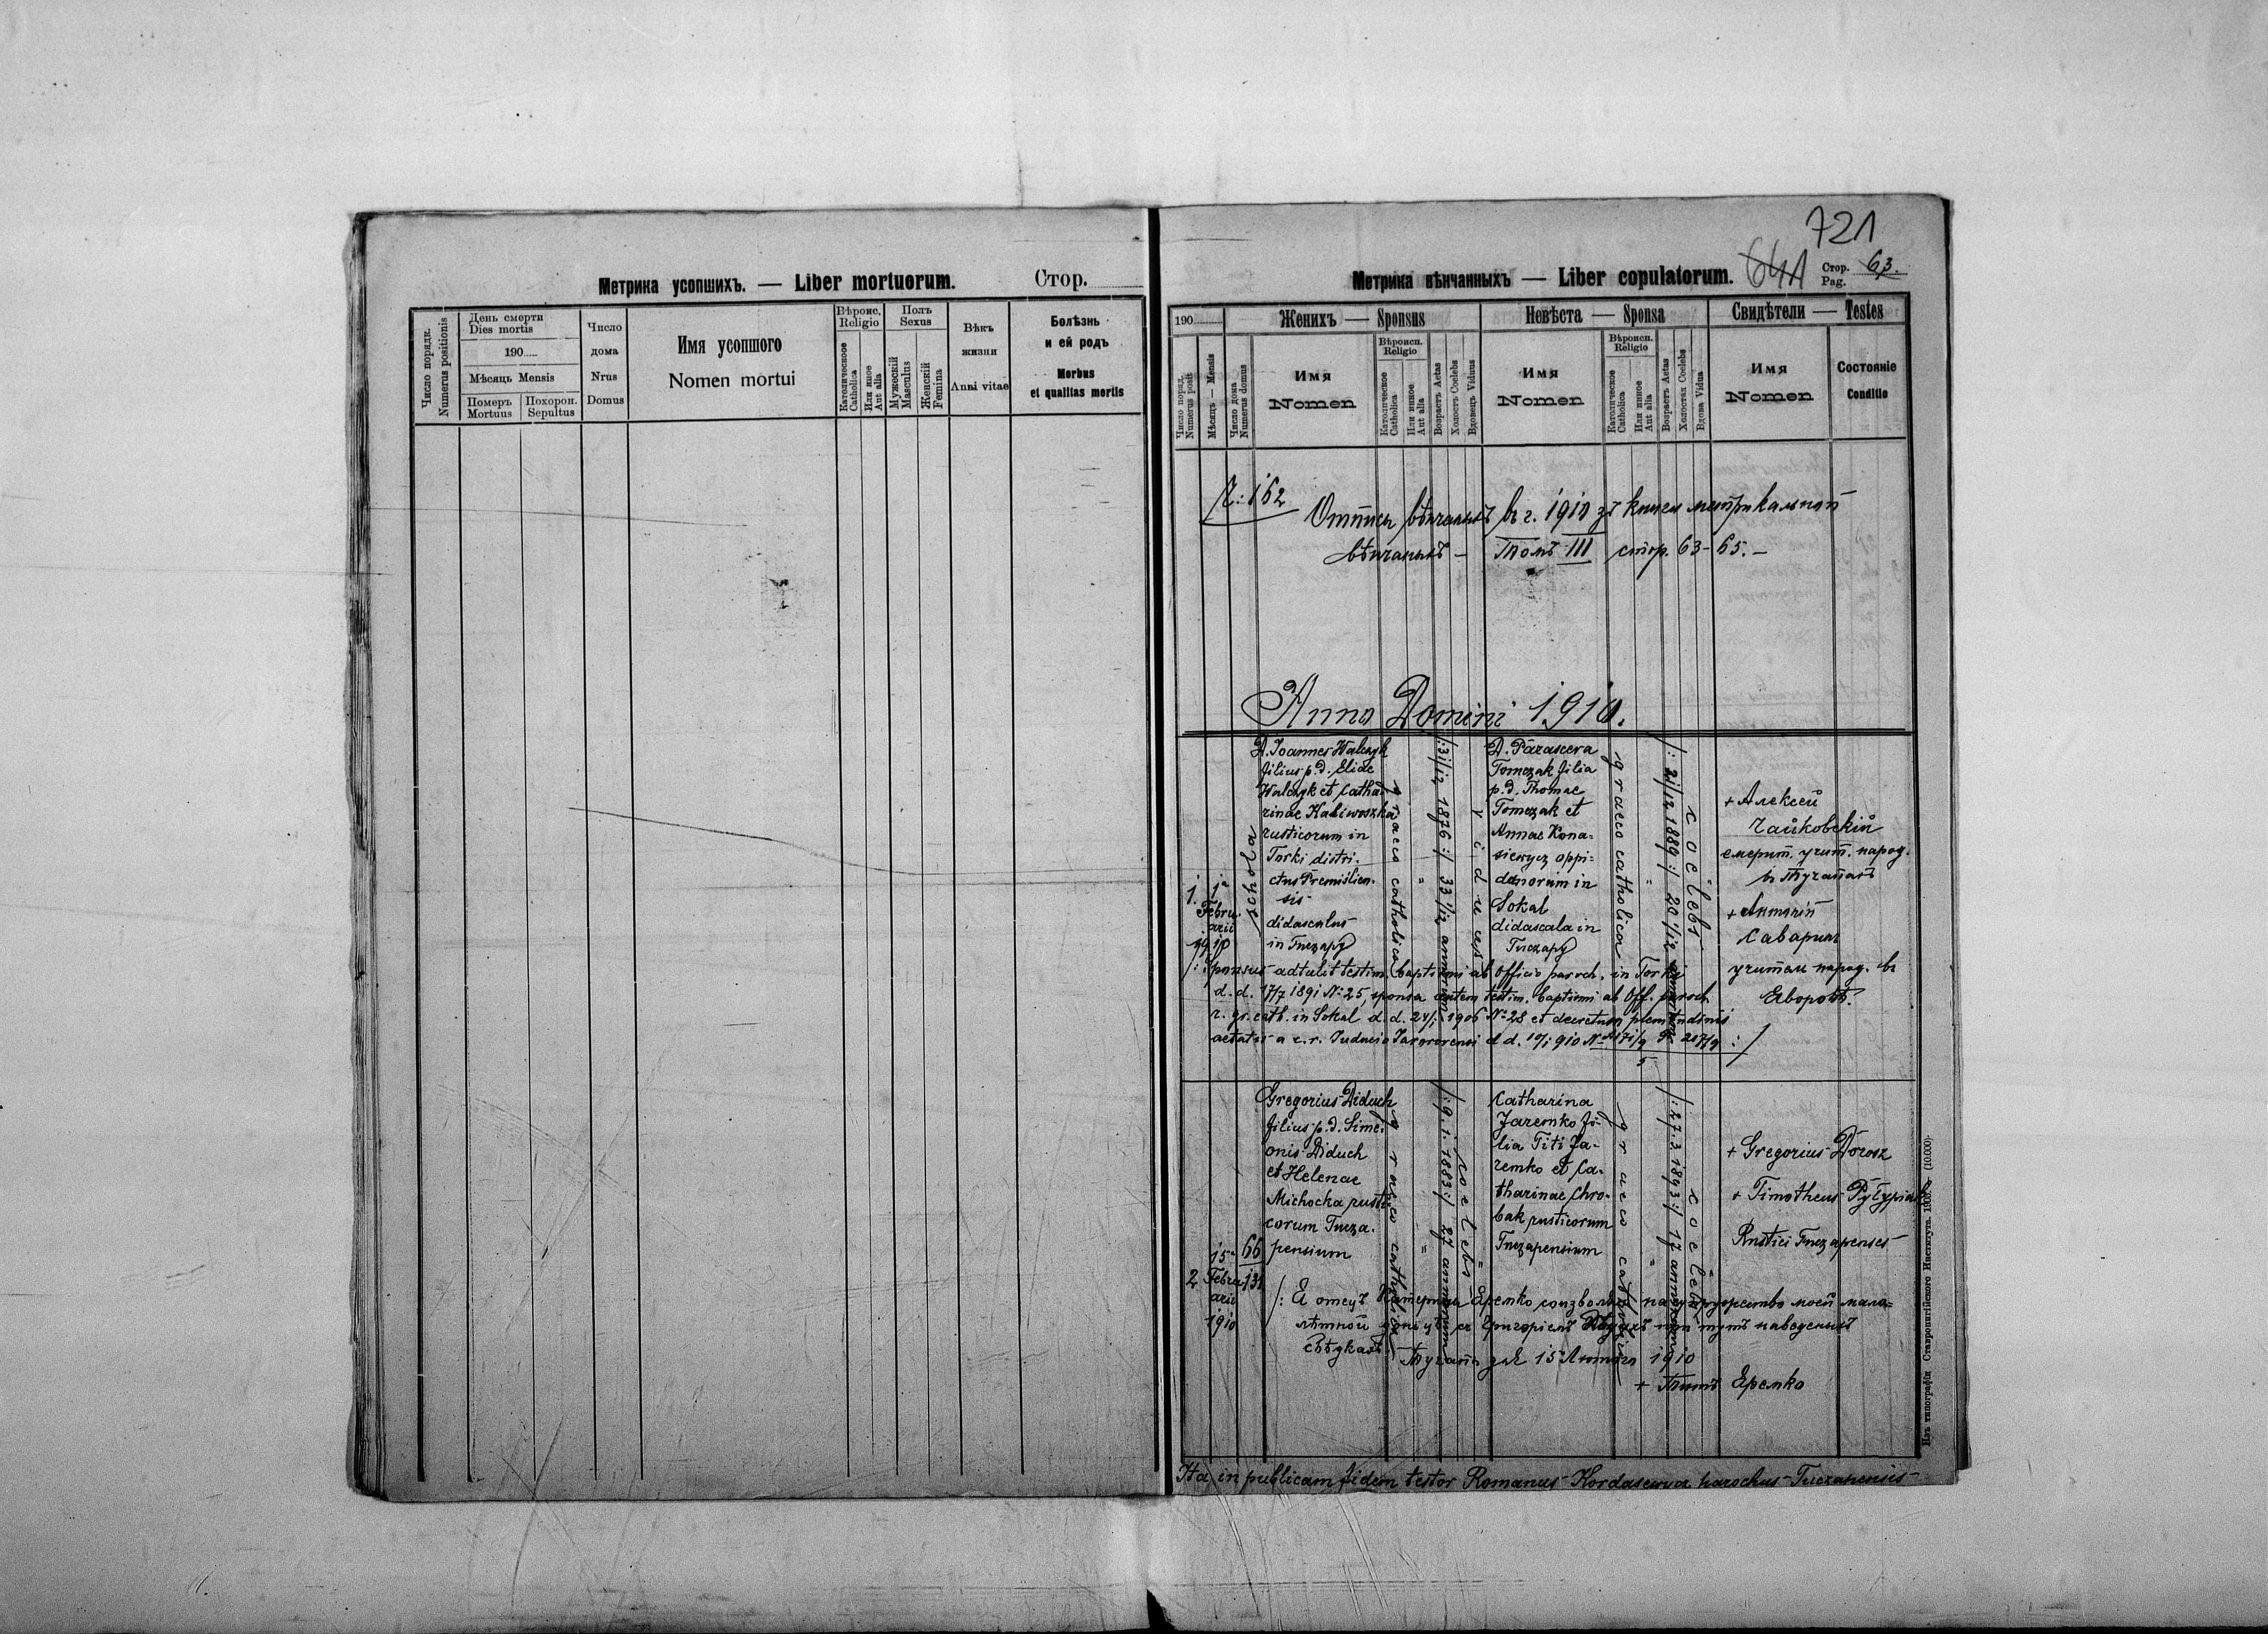 Метрика усопшихъ. — Liber mortuorum. Стор.
Число порядк.
Numerus positionis
День смерти
Dies mortis
190
Мѣсяць Mensis
Померъ
Mortuus
Похорон.
Sepultus
Число
дома
Nrus
Domus
Имя усопшого
Nomen mortui
Вѣроис.
Religio
Католическоое
Catholica
Или иное
Aut alia
Полъ
Sexus
Мужескій
Masculus
Женскій
Femina
Вѣкъ
жизни
Anni vitae
Болѣзнь
и ей родъ
Morbus
et qualitas mortis
721
64A
Метрика вѣнчанныхъ — Liber copulatorum.
Стор. 63.
Pag.
190
Женихъ — Sponsus
Невѣста — Sponsa
Свидѣтели — Testes
Число поряд.
Numerus posit
Мѣсяць — Mensis
Число дома
Numerus domus
Имя
Nomen
Вѣроисп.
Religio
Католическое
Catholica
Или иное
Aut alia
Возрастъ Aetas
Холостъ Coelebs
Вдовецъ Viduus
Имя
Nomen
Вѣроисп.
Religio
Католическое
Catholica
Или иное
Aut alia
Возрастъ Aetas
Холостая Coelebs
Вдова Vidua
Имя
Nomen
Состояніе
Conditio
Ч: 162
Отписъ вѣнчаныхъ в г. 1910 зъ книги метрикальной
вѣнчаныхъ – Томъ III стор. 63-65. –
Anno Domini 1910.
1.
1ª
Febru-
arii
1910
D. Joannes Walczyk
filius p.d. Eliae
Walczyk et Catha-
rinae Kaliwoszka
rusticorum in
Torki distri-
ctus Premislien-
sis
didasculus
in Tuczapy
graeco catholica
"
/:31/12 1876:/ 33 1/12 annorum
viduus
D. Parasceva
Tomczak filia
p.d. Thomae
Tomczak et
Annae Kona-
siewycz oppi-
danorum in
Sokal
didascala in
Tuczapy
graeco catholica
"
/: 21/12 1889:/ 20 1/12 annorum
coelebs
+ Алексей
Чайковскій
емерит. учит. народ.
в Тучапахъ
+ Антоній
Саварин
учитель народ. в
Яворовѣ.
/: Sponsus adtulit testim. baptismi ab Officio paroch. in Torki
d. d. 17/7 1891 N: 25, sponsa autem testim. baptismi ab Off. paroch
r. gr. cath. in Sokal d. d. 24/1 1906 Nº 28 et decretum plenitudinis
aetatis a c. r. Judicio Javoroviensi d d. 19/1 910
2
15ª
Febru-
arii
1910
66
131
Gregorius Diduch
filius p.d. Sime-
onis Diduch
et Helenae
Michocka rusti-
corum Tucza-
pensium
graeco catholica
"
/: 9. 1. 1883:/ 27 annorum
coelebs
Catharina
Jaremko fi-
lia Titi Ja-
remko et Ca-
tharinae Chro-
bak rusticorum
Tuczapensium
graeco catholica
"
/: 27.3 1893:/ 17 annorum
coelebs
+ Gregorius Dorosz
+ Timotheus
Rustici Tuczapenses
/: Я отецъ Катерины Яремко соизволяю на супружество моей мало-
лѣтной доньцѣ съ Григоріемъ Дідухъ при тутъ наведеныхъ
свѣдкахъ.
Тучапы дня 15 Лютого 1910
+ Титъ Яремко
Ita in publicam fidem testor Romanus Kordasewycz parochus Tuczapensis
Изъ типографіи Ставропигійского Института. 1908. (10.000).